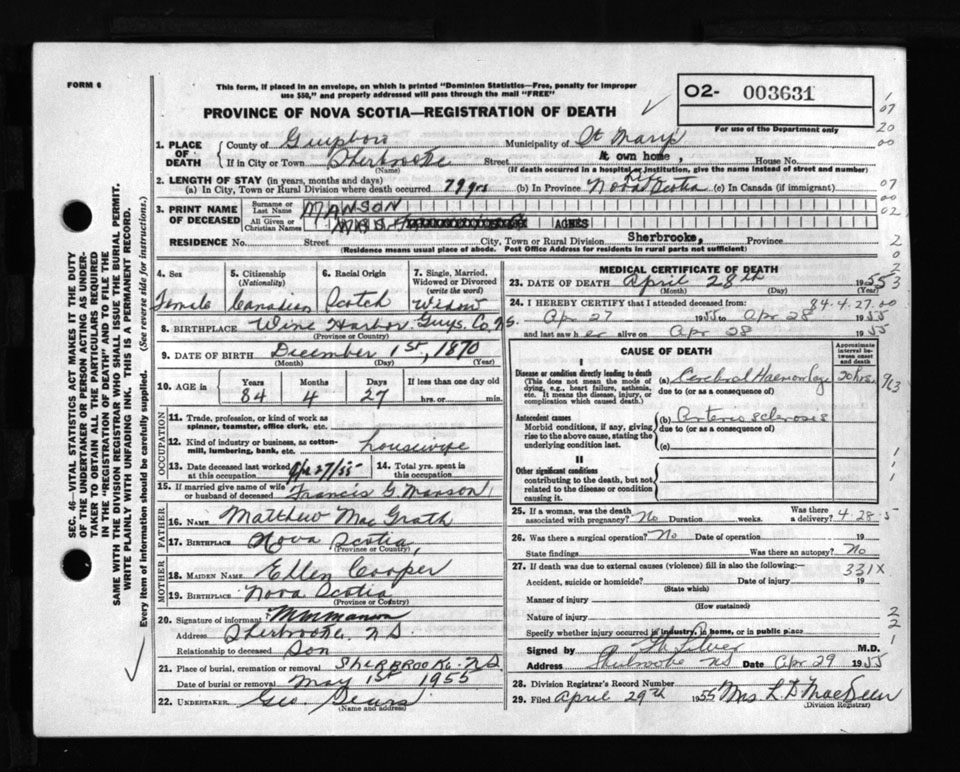 FORM 6
This form, if placed in an envelope, on which is printed "Dominion Statistics—Free, penalty for improper
use $50," and properly addressed will pass through the mail "FREE"
PROVINCE OF NOVA SCOTIA—REGISTRATION OF DEATH
02- 003631
For use of the Department only
07
20
00
07
00
02
SEC. 46—VITAL STATISTICS ACT MAKES IT THE DUTY
OF THE UNDERTAKER OR PERSON ACTING AS UNDER-
TAKER TO OBTAIN ALL THE PARTICULARS REQUIRED
IN THE "REGISTRATION OF DEATH" AND TO FILE THE
SAME WITH THE DIVISION REGISTRAR WHO SHALL ISSUE THE BURIAL PERMIT.
WRITE PLAINLY WITH UNFADING INK. THIS IS A PERMANENT RECORD.
Every item of information should be carefully supplied. (See reverse side for instructions.)
1. PLACE OF DEATH
County of Municipality of St Marys
If in City or Town Sherbrooke Street At own home, House No.
(Name) (If death occurred in a hospital or institution, give the name instead of street and number)
2. LENGTH OF STAY (in years, months and days) life
(a) In City, Town or Rural Division where death occurred 79 yrs (b) In Province Nova Scotia (c) In Canada (if immigrant)
3. PRINT NAME OF DECEASED
Surname or Last Name MANSON
All Given or Christian Names MRS. AGNES
RESIDENCE No. Street City, Town or Rural Division Sherbrooke, Province
(Residence means usual place of abode. Post Office Address for residents in rural parts not sufficient)
4. Sex
Female
5. Citizenship
(Nationality)
Canadian
6. Racial Origin
Scotch
7. Single, Married,
Widowed or Divorced
(write the word)
Widow
8. BIRTHPLACE Wine Harbor Guys. Co. N.S.
(Province or Country)
9. DATE OF BIRTH December 1st, 1870
(Month) (Day) (Year)
10. AGE in
Years Months Days If less than one day old
84 4 27 hrs. or min.
OCCUPATION
11. Trade, profession, or kind of work as
spinner, teamster, office clerk, etc.
12. Kind of industry or business, as cotton-
mill, lumbering, bank, etc. housewife
13. Date deceased last worked
at this occupation Apr 27/55
14. Total yrs. spent in
this occupation
15. If married give name of wife
or husband of deceased Francis G. Manson
FATHER
16. NAME Matthew Mac Grath
17. BIRTHPLACE Nova Scotia
(Province or Country)
MOTHER
18. MAIDEN NAME Ellen Cooper
19. BIRTHPLACE Nova Scotia
(Province or Country)
20. Signature of informant Manson
Address Sherbrooke, N.S.
Relationship to deceased Son
21. Place of burial, cremation or removal SHERBROOKE. N.S.
Date of burial or removal May 1st 1955
22. UNDERTAKER Geo. Sears
(Name and address)
MEDICAL CERTIFICATE OF DEATH
23. DATE OF DEATH April 28th 1955
(Month) (Day) (Year)
24. I HEREBY CERTIFY that I attended deceased from: 84.4.27.00
Apr 27 1955 to Apr 28 1955
and last saw her alive on Apr 28 1955
CAUSE OF DEATH
Approximate
interval be-
tween onset
and death
I
Disease or condition directly leading to death
(This does not mean the mode of
dying, e.g., heart failure, asthenia,
etc. It means the disease, injury, or
complication which caused death.)
(a) Cerebral Haemorhage 20 hrs.
due to (or as a consequence of)
Antecedent causes
Morbid conditions, if any, giving
rise to the above cause, stating the
underlying condition last.
(b) Arteriosclerosis
due to (or as a consequence of)
(c)
II
Other significant conditions
contributing to the death, but not
related to the disease or condition
causing it.
25. If a woman, was the death
associated with pregnancy? No Duration weeks. Was there
a delivery? 4-28-5
26. Was there a surgical operation? No Date of operation 19
State findings Was there an autopsy? No
27. If death was due to external causes (violence) fill in also the following:— 331X
Accident, suicide or homicide? Date of injury 19
(State which)
Manner of injury
(How sustained)
Nature of injury
Specify whether injury occurred in industry, in home, or in public place
Signed by M.D.
Address Sherbrooke NS Date Apr 29 1955
28. Division Registrar's Record Number
29. Filed April 29th 1955 Mrs. L. D MacKeen
(Division Registrar)